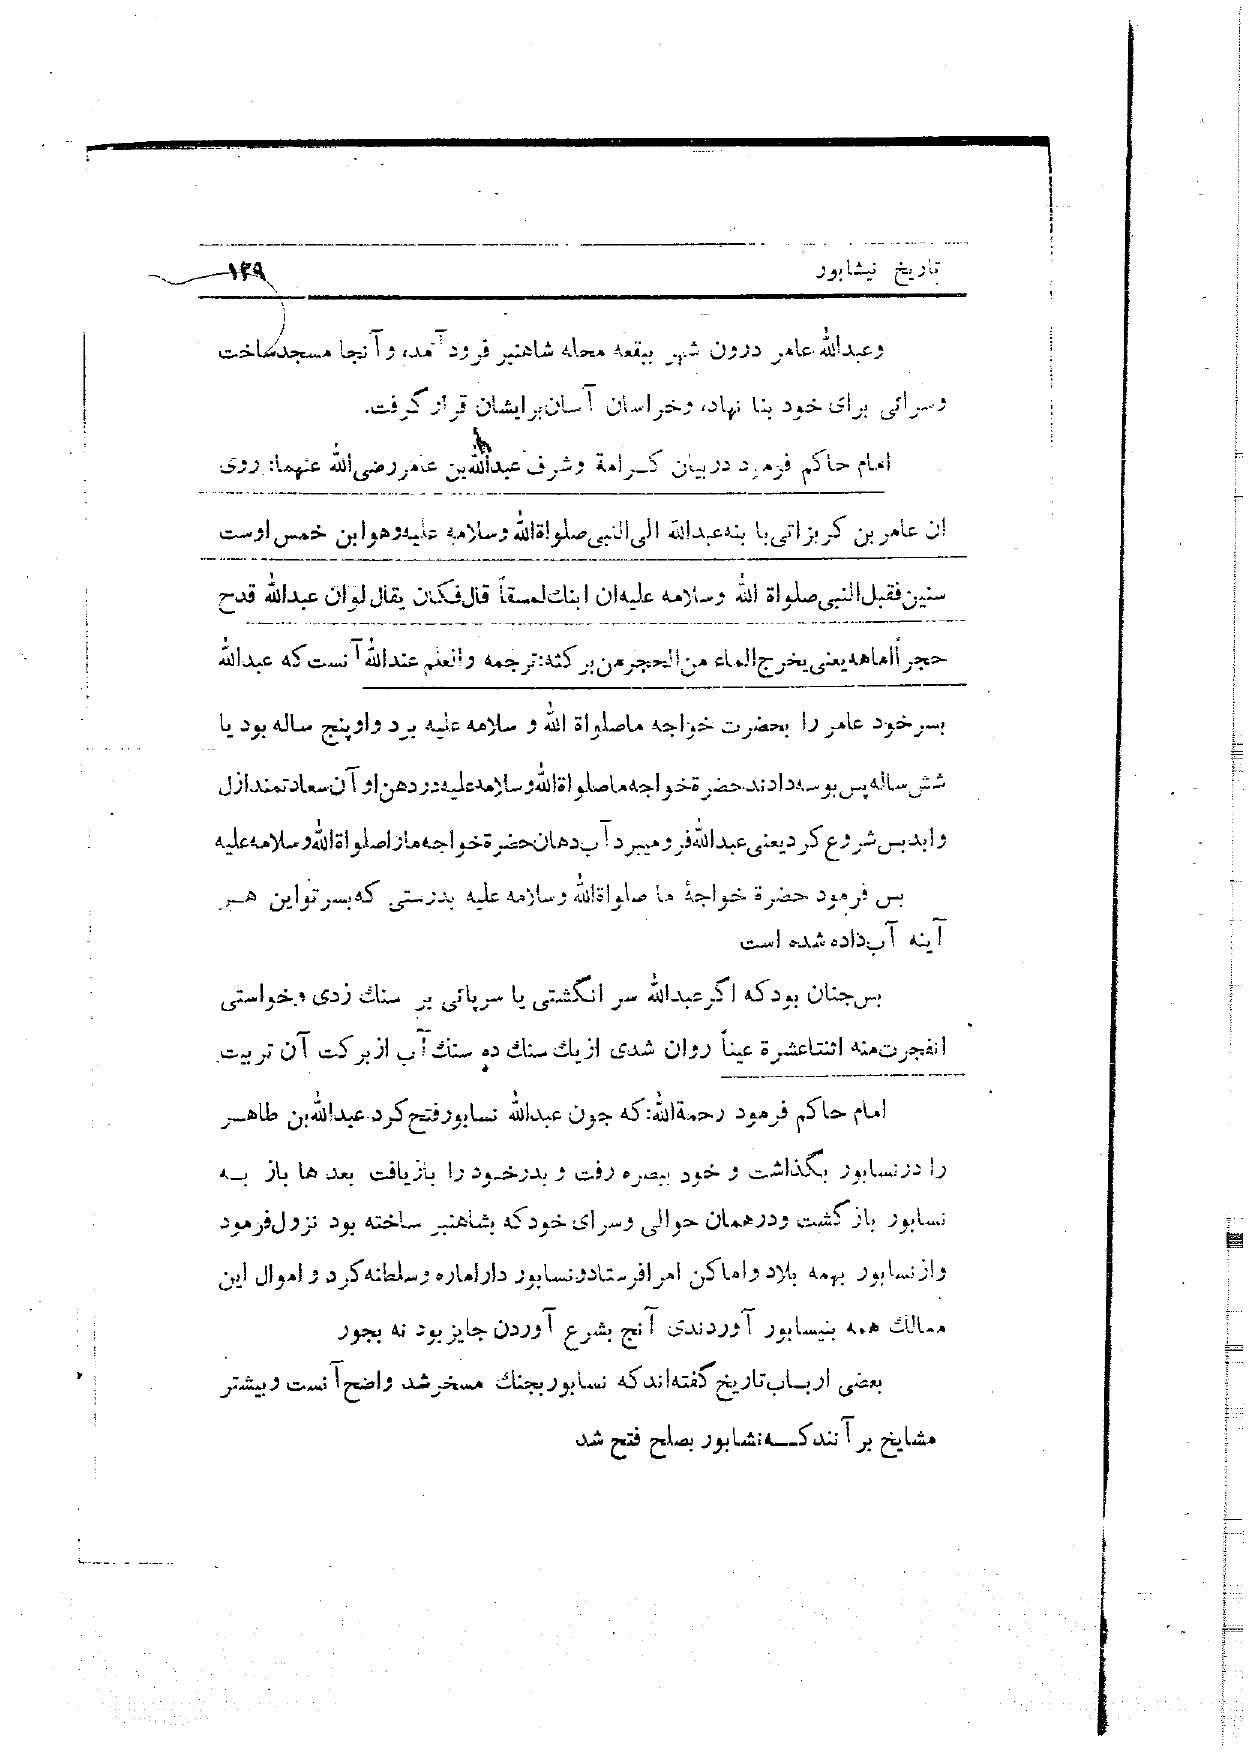 تاریخ نیشابور
۱۲۹
وعبدالله عامر درون شهر ببقعه محله شاهنبر فرود آمد، وآنجا مسجد ساخت
وسرائی برای خود بنا نهاد، وخراسان آسان برایشان قرار گرفت.
امام حاکم فرمود دربیان کرامة وشرف عبدالله بن عامر رضی الله عنهما: روی
ان عامر بن کریز اتی با بنه عبدالله الی النبی صلواة الله وسلامه علیه وهو ابن خمس اوست
سنین فقبل النبی صلواة الله وسلامه علیه ان ابنك لمسقاً قال فکان یقال لوان عبدالله قدح
حجراً لماهه یعنی یخرج الماء من الحجر من برکته: ترجمه والعلم عندالله آنست که عبدالله
بسر خود عامر را بحضرت خواجه ما صلواة الله و سلامه علیه برد واو پنج ساله بود یا
شش ساله پس بوسه دادند حضرة خواجه ما صلواة الله وسلامه علیه در دهن او آن سعادتمند ازل
وابد بس شروع کرد یعنی عبدالله فرو میبرد آب دهان حضرة خواجه ما را صلواة الله وسلامه علیه
بس فرمود حضرة خواجۀ ما صلواة الله وسلامه علیه بدرستی که بسر تو این هر
آینه آب داده شده است
بس جنان بود که اکر عبدالله سر انگشتی یا سرپائی بر سنك زدی و خواستی
انفجرت منه اثنتا عشرة عیناً روان شدی از یك سنك ده سنك آب از برکت آن تربیت
امام حاکم فرمود رحمة الله: که جون عبدالله نسابور فتح کرد عبدالله بن طاهر
را در نسابور بگذاشت و خود ببصره رفت و بدر خود را بازیافت بعد ها باز به
نسابور بازگشت ودرهمان حوالی وسرای خود که بشاهنبر ساخته بود نزول فرمود
واز نسابور بهمه بلاد واماکن امرا فرستاد ونسابور دار اماره وسلطانه کرد و اموال این
ممالك همه بنیسابور آوردندی آنج بشرع آوردن جایز بود نه بجور
بعضی ارباب تاریخ گفته اند که نسابور بجنك مسخر شد واضح آنست وبیشتر
مشایخ بر آنند که نشابور بصلح فتح شد